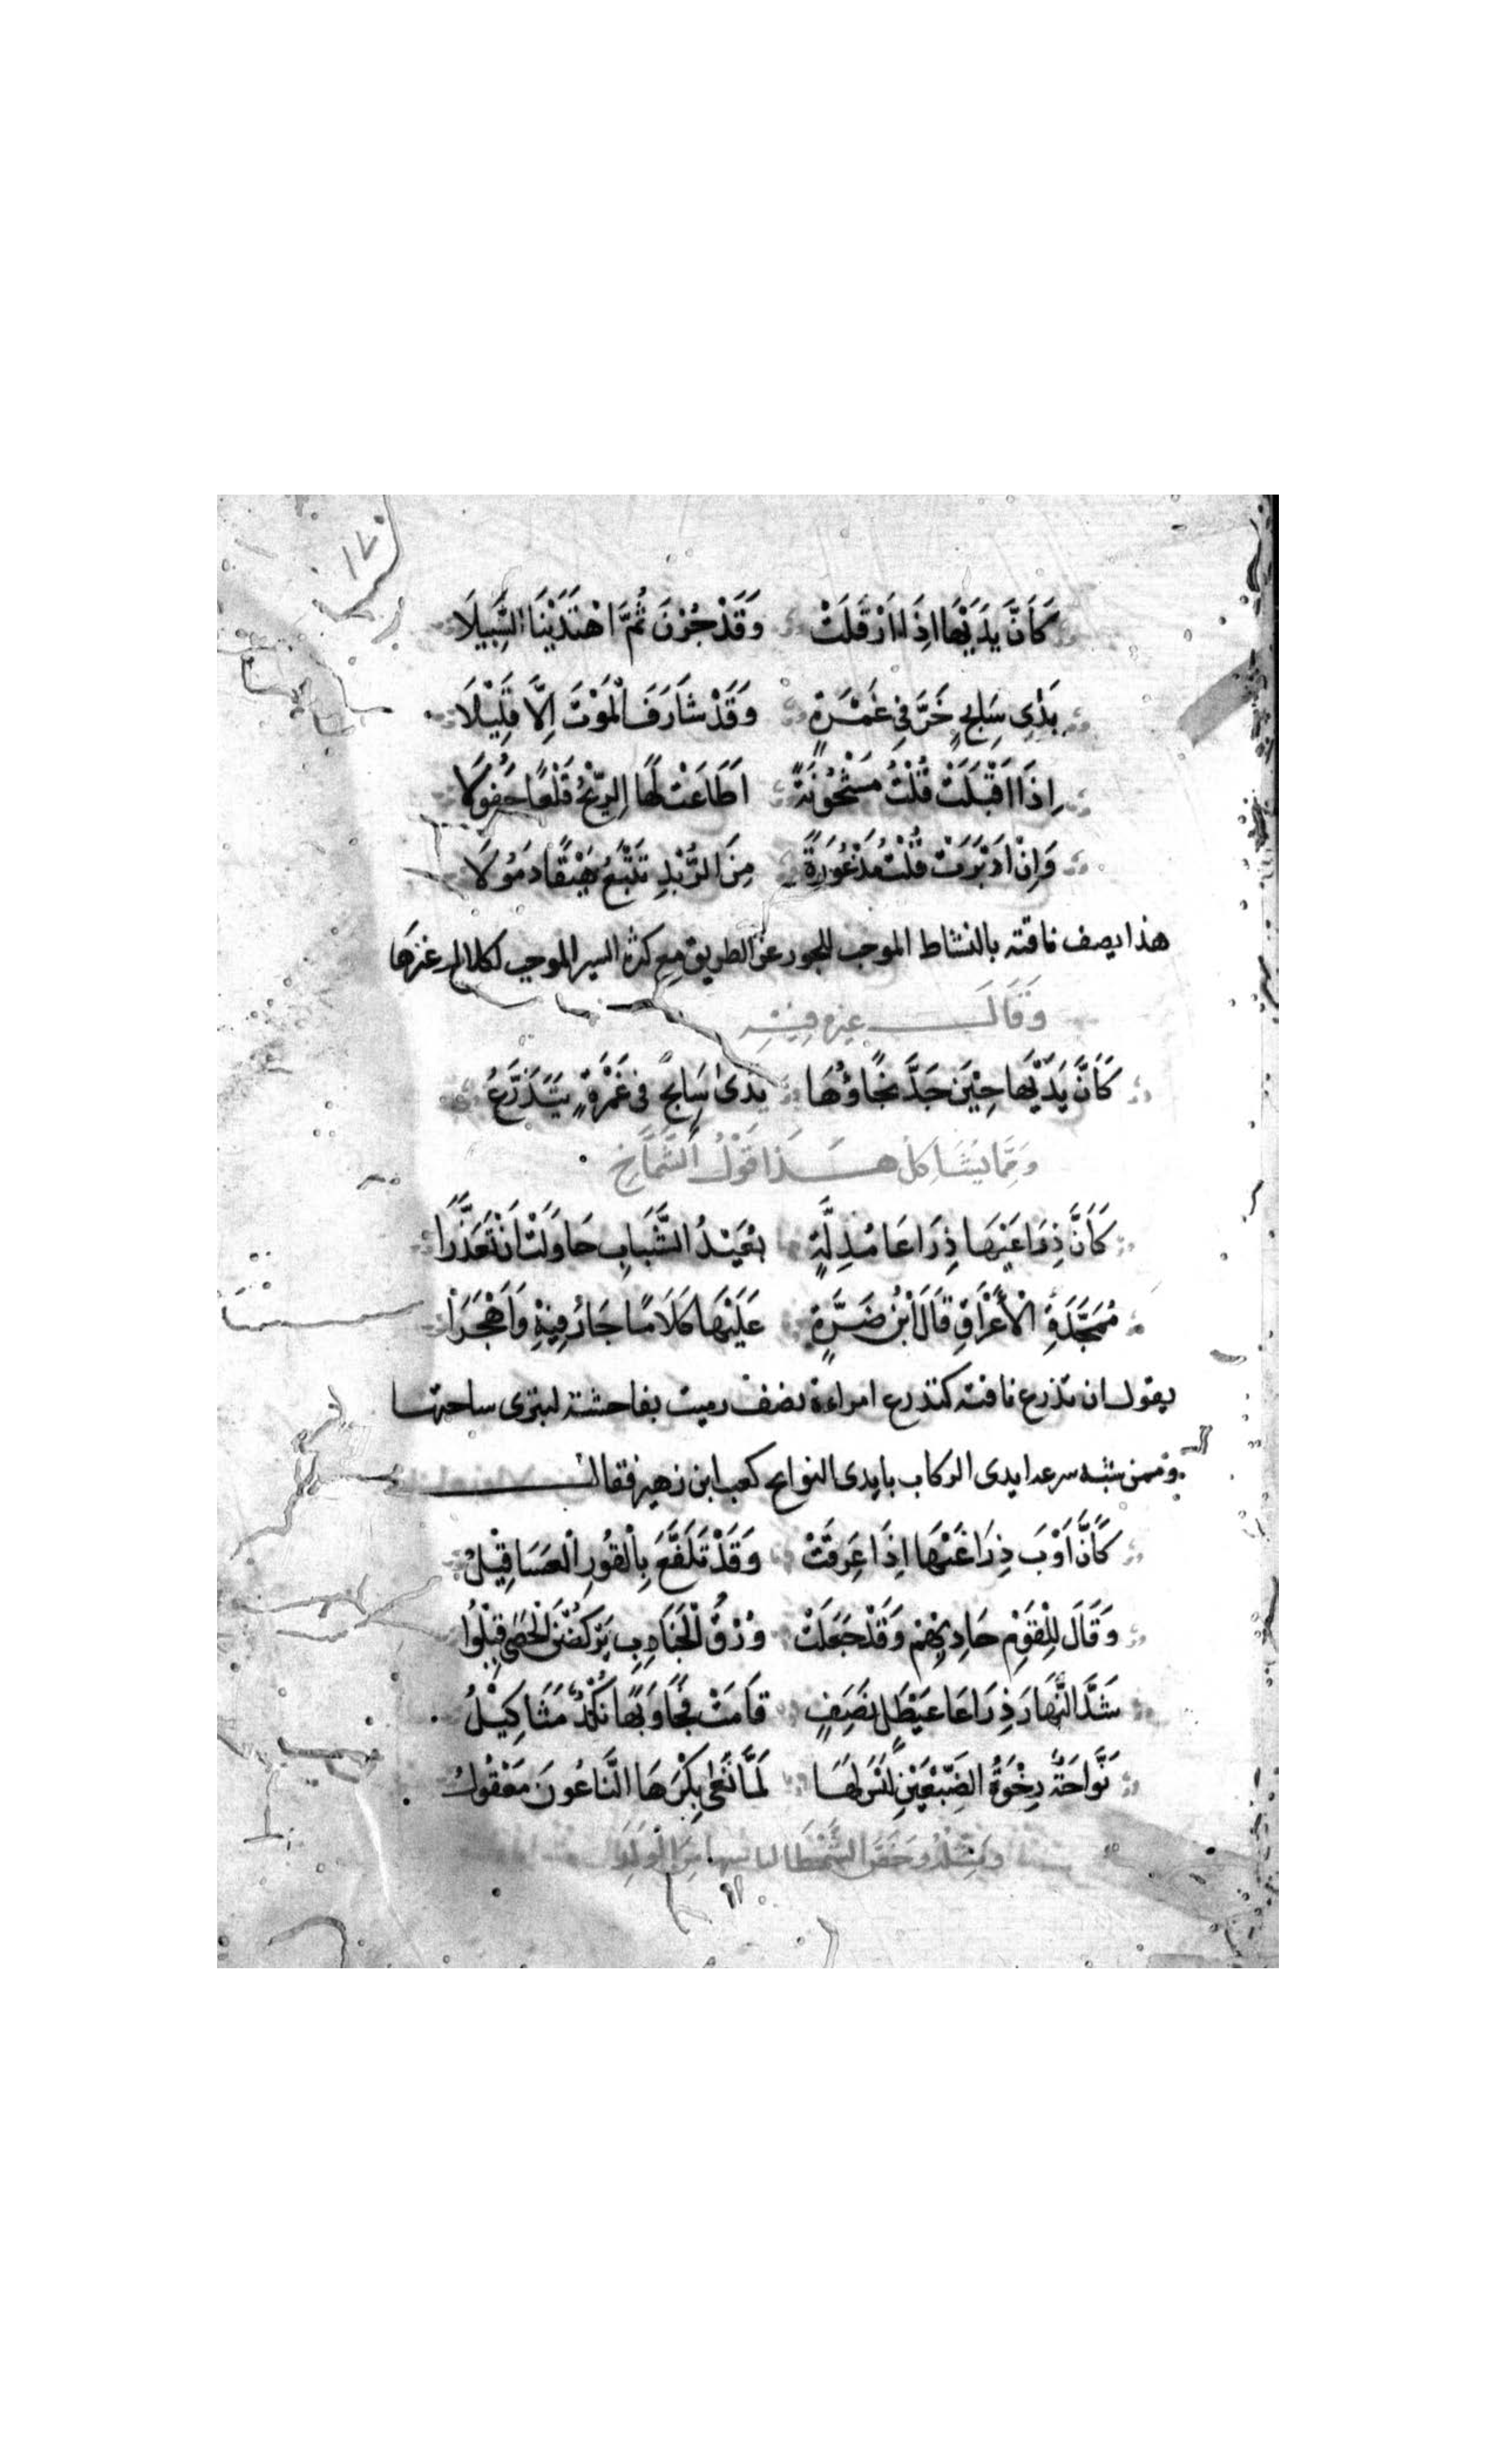 ١٧
كَاَنَّ يَدَيْهَا اِذَا اَرْقَلَتْ وَقَدْ جُزْنَ ثُمَّ اهْتَدَيْنَا السَّبِيلَا
يَدَىْ سَابِحٍ خَرَّ فِى غَمْرَةٍ وَقَدْ شَارَفَ الْمَوْتَ اِلَّا قَلِيْلَا
اِذَا اَقْبَلَتْ قُلْتُ مَشْحُوْنَةً اَطَاعَتْ لَهَا الرِّيْحُ قَلْعًا جَفُوْلَا
وَاِنْ اَدْبَرَتْ قُلْتُ مَذْعُوْرَةً مِنَ الرُّبْدِ تَتْبَعُ هَيْقًا ذَمُوْلَا
هذا يصف ناقته بالنشاط الموجب للجور عن الطريق مع كثرة السير الموجب لكلال غيرها
وَقَالَ غيره فِيْهِ
كَاَنَّ يَدَيْهَا حِيْنَ جَدَّ نَجَاؤُهَا يَدَىْ سَابِحٍ فِى غَمْرَةٍ يَتَذَرَّعُ
وَمِمَّا يُشَاكِلُ هَذَا قَوْلُ الشَّمَّاخِ
كَاَنَّ ذِرَاعَيْهَا ذِرَاعَا مُذِلَّةٍ بُعَيْدَ الشَّبَابِ حَاوَلَتْ اَنْ تَعَذَّرَا
مُمَجَّدَةِ الْاَعْرَاقِ قَالَ ابْنُ ضَرَّةٍ عَلَيْهَا كَلَامًا جَارَ فِيْهِ وَاَهْجَرَا
يقول ان تذرع ناقته كتذرع امراءة نصف رميت بفاحشة لتبرى ساحتها
وممن شبه سرعة ايدى الركاب بايدى النوايح كعب ابن زهير فقال
كَاَنَّ اَوْبَ ذِرَاعَيْهَا اِذَا عَرِقَتْ وَقَدْ تَلَفَّعَ بِالْقُوْرِ الْعَسَاقِيْلُ
وَقَالَ لِلْقَوْمِ حَادِيْهِمْ وَقَدْ جَعَلَتْ وُرْقُ الْجَنَادِبِ يَرْكُضْنَ الْحَصَى قِيْلُوْا
شَدَّ النَّهَارِ ذِرَاعَا عَيْطَلٍ نَصَفٍ قَامَتْ فَجَاوَبَهَا نُكْدٌ مَثَاكِيْلُ
نَوَّاحَةٌ رِخْوَةُ الضَّبْعَيْنِ لَيْسَ لَهَا لَمَّا نَعَى بِكْرَهَا النَّاعُوْنَ مَعْقُوْلُ